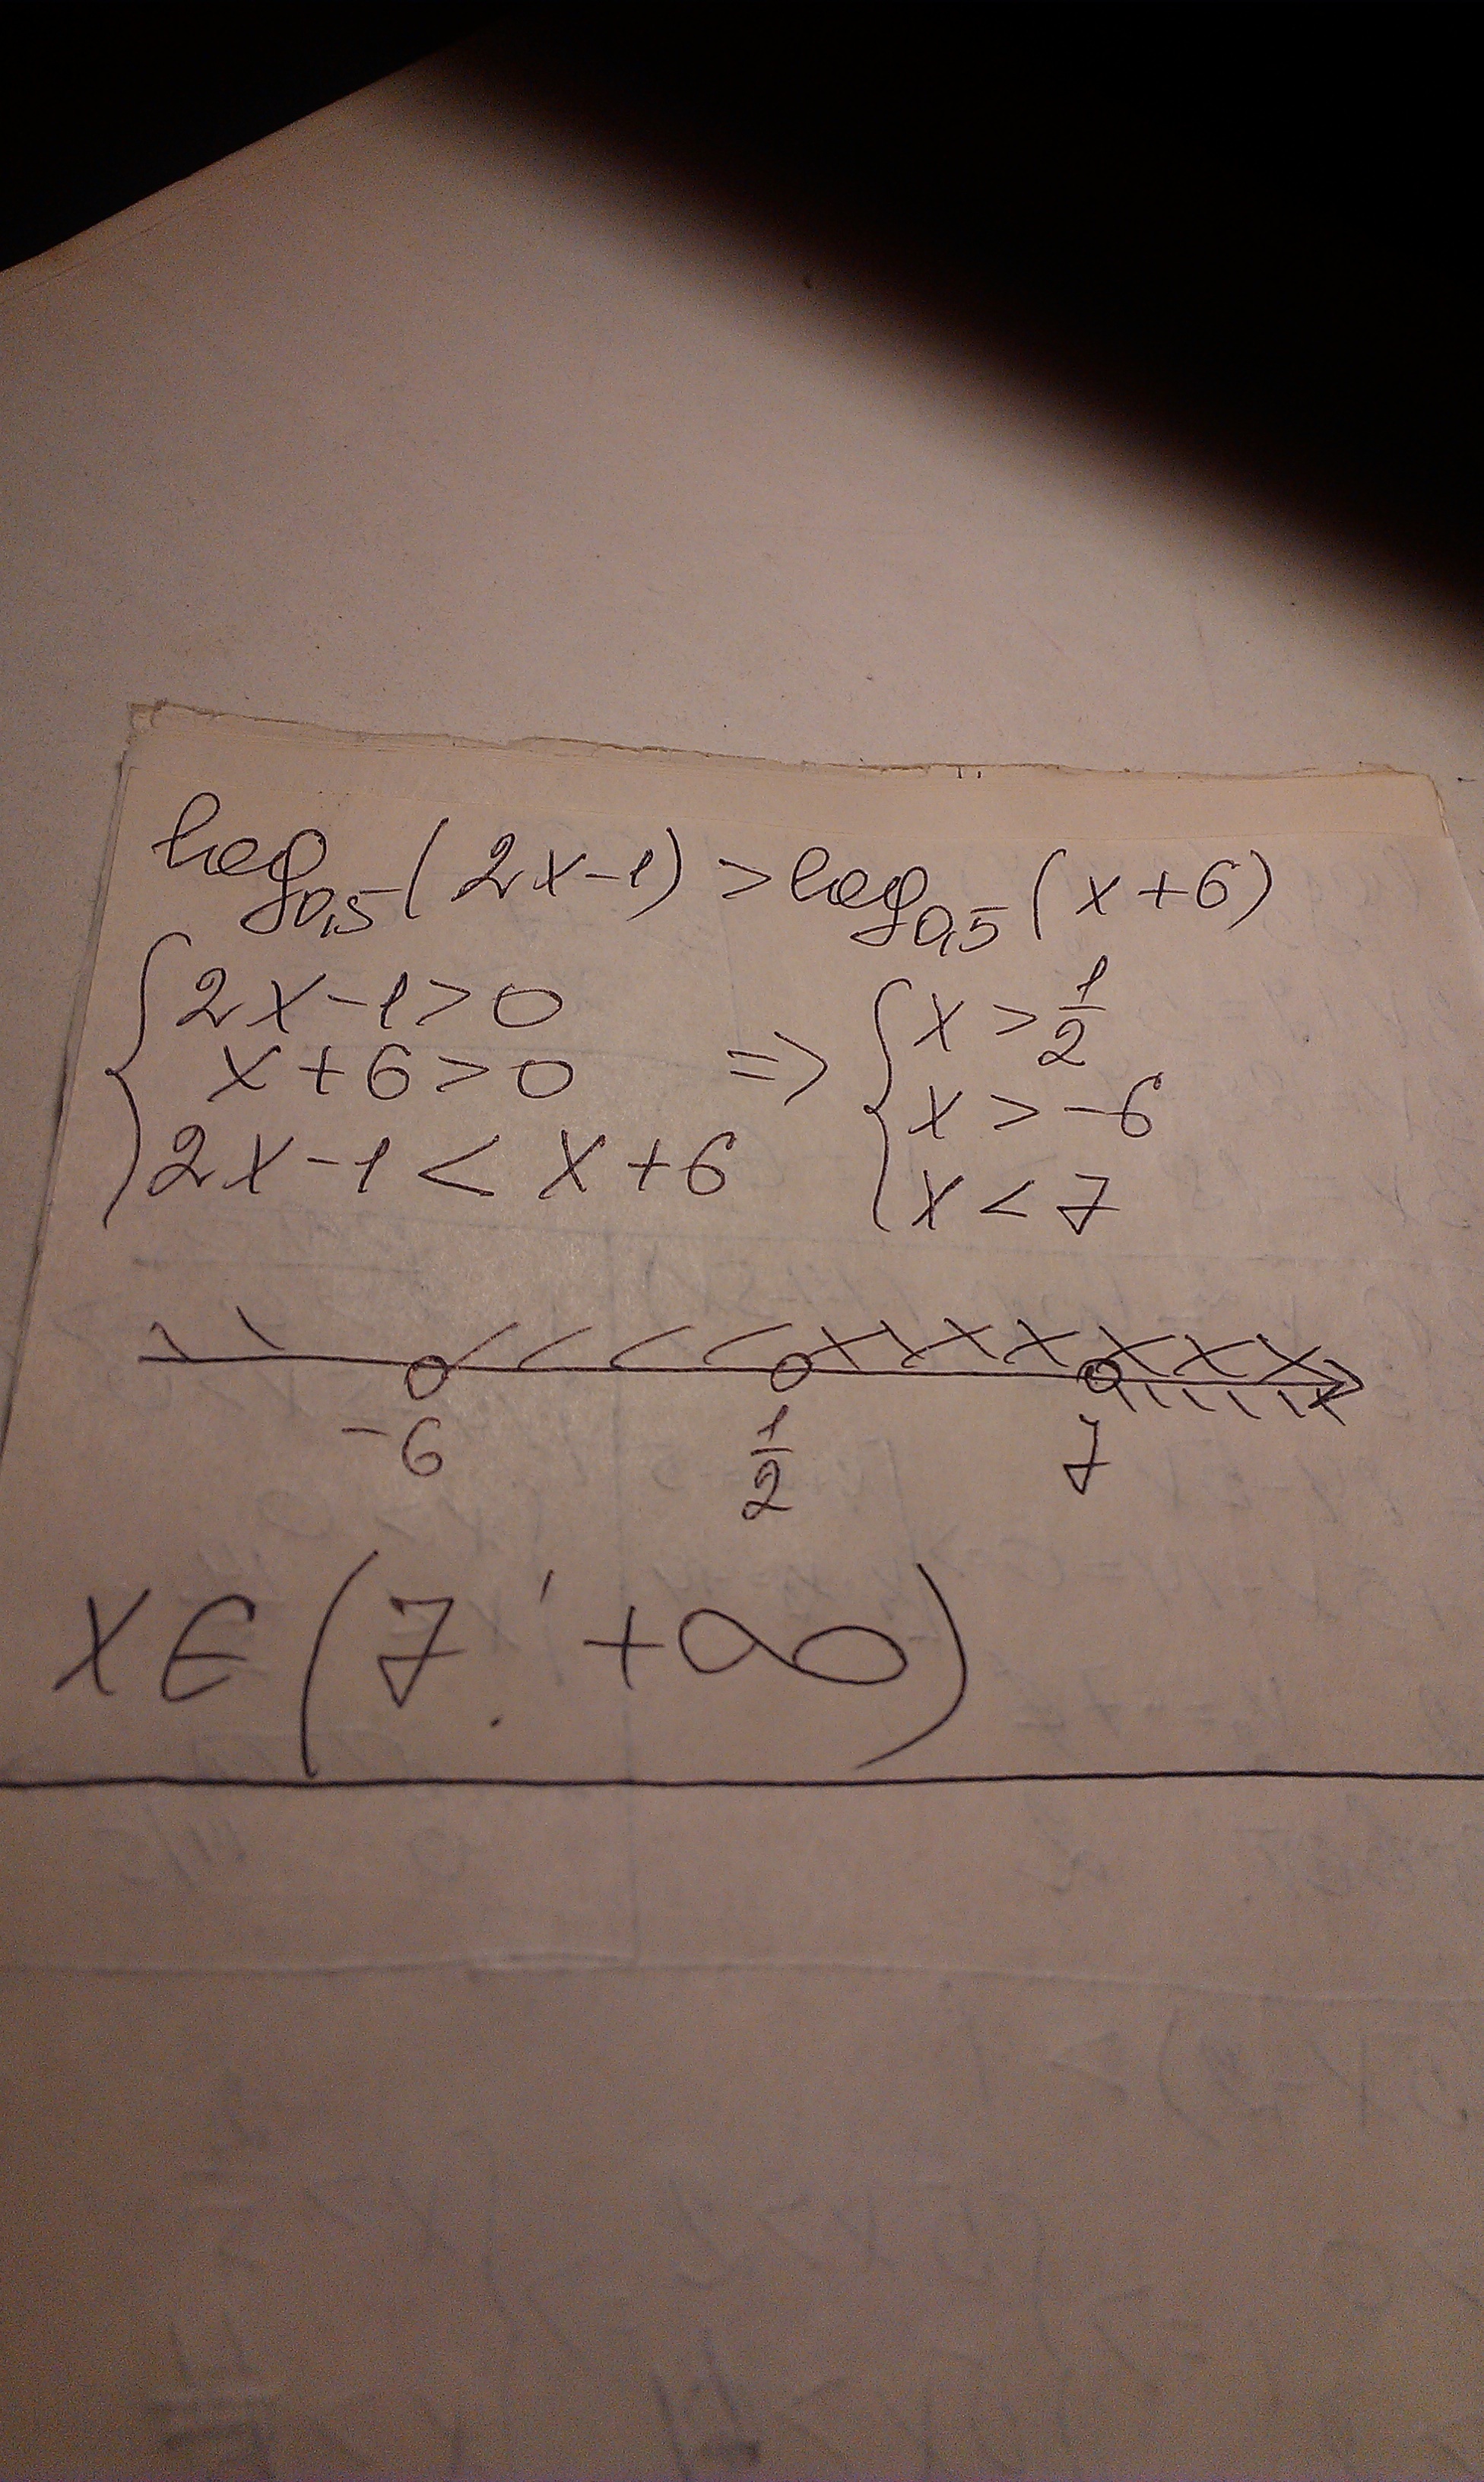 log₀,₅(2x-1)>log₀,₅(x+6)
{2x-1>0 => {x>1/2
x+6>0 x>-6
2x-1<x+6 x<7
-6 1/2 7
x∈(7; +∞)